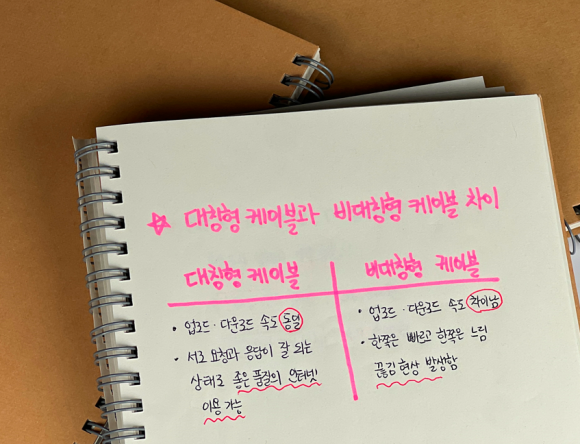 ☆ 대칭형 케이블과 비대칭형 케이블 차이
대칭형 케이블
• 업로드·다운로드 속도 동일
• 서로 요청과 응답이 잘 되는
상태로 좋은 품질의 인터넷
이용 가능
비대칭형 케이블
• 업로드·다운로드 속도 차이남
• 한쪽은 빠르고 한쪽은 느림
끊김 현상 발생함